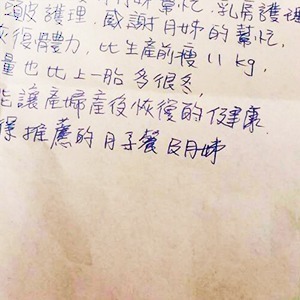 頭皮護理.感謝月姊的幫忙.
恢復體力,比生產前瘦11kg,
量也比上一胎多很多,
能讓產婦產後恢復的健康.
推薦的月子餐 月姊